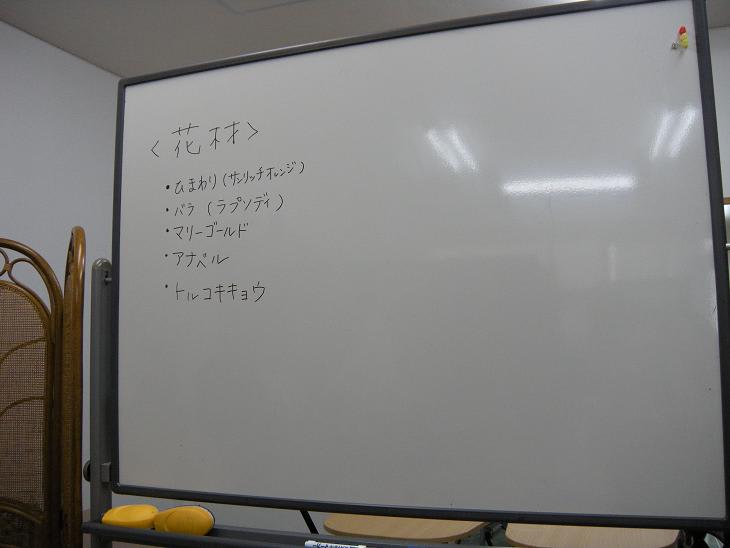 <花材>
・ひまわり(サンリッチオレンジ)
・バラ (ラプソディ)
・マリーゴールド
・アナベル
・トルコキキョウ